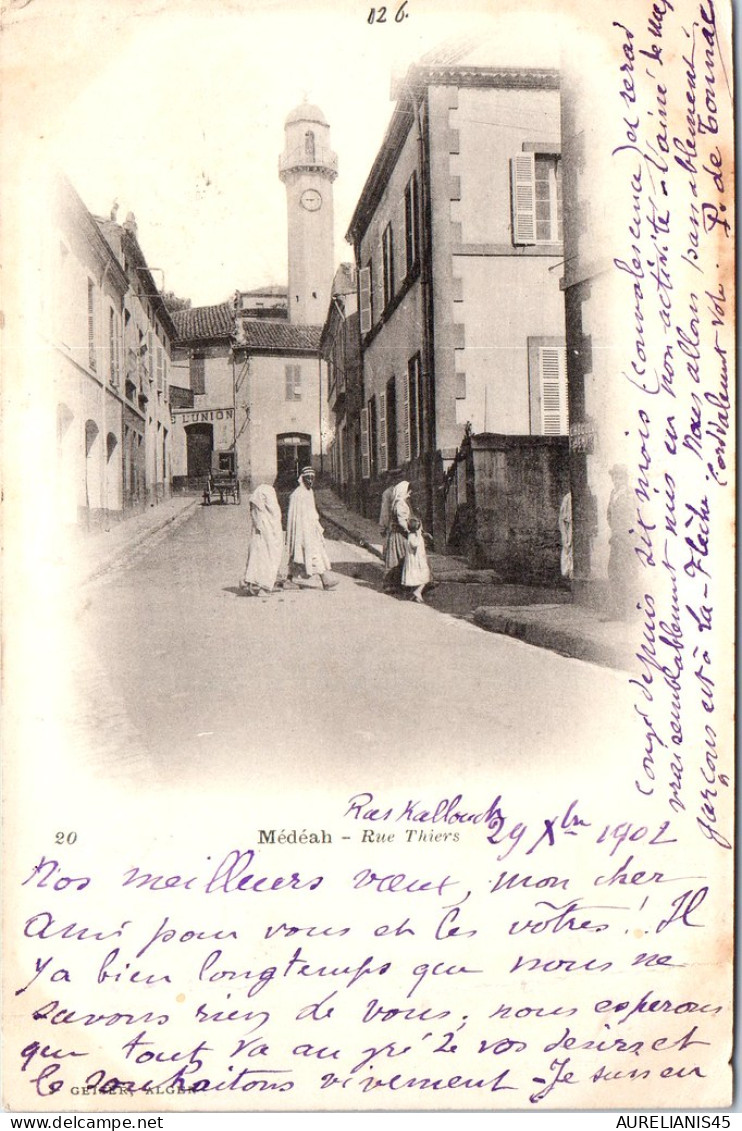 126
S L'UNION
Ras Kallouch
20
Médéah - Rue Thiers
29 Xbre 1902
Nos meilleurs vœux, mon cher
Ami pour vous et les vôtres! Il
y a bien longtemps que nous ne
savons rien de vous; nous espérons
que tout va au gré de vos désirs et
le souhaitons vivement - Je suis en
GEISER, ALGER
congé depuis six mois (convalescence) et serai
vraisemblablement mis en non activité - L'aîné de mes
garçons est à la - Flèche. Nous allons passablement
Cordialement vôtre. P. de Tonnac
AURELIANIS45